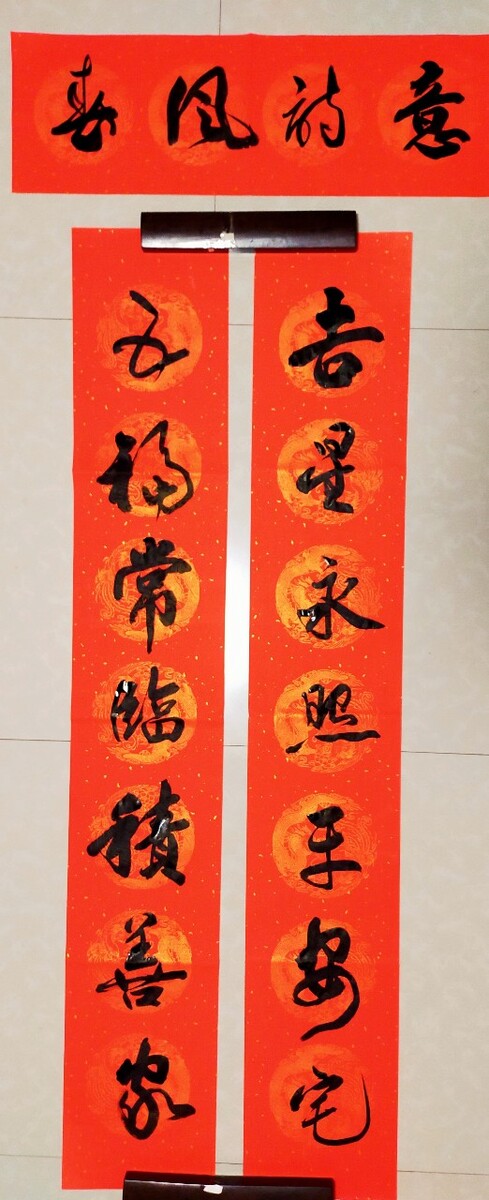 春风诗意
吉星永照平安宅
五福常臨積善家